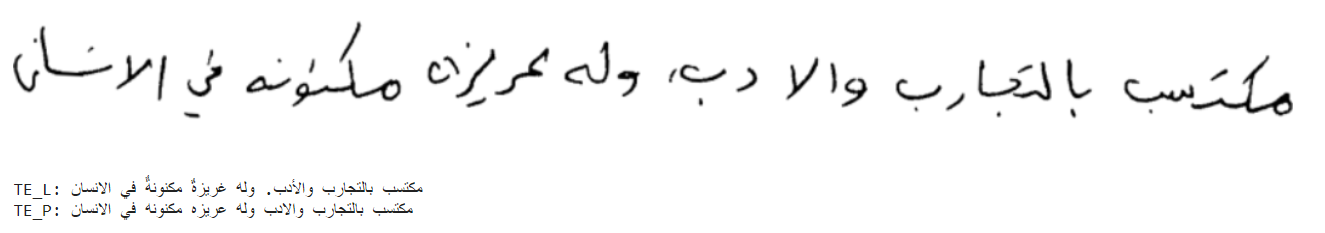 مكتسب بالتجارب والادب، وله غريزة مكنونه في الانسان
TE_L: مكتسب بالتجارب والأدب. وله غريزةٌ مكنونةٌ في الانسان
TE_P: مكتسب بالتجارب والادب وله عريزه مكنونه في الانسان